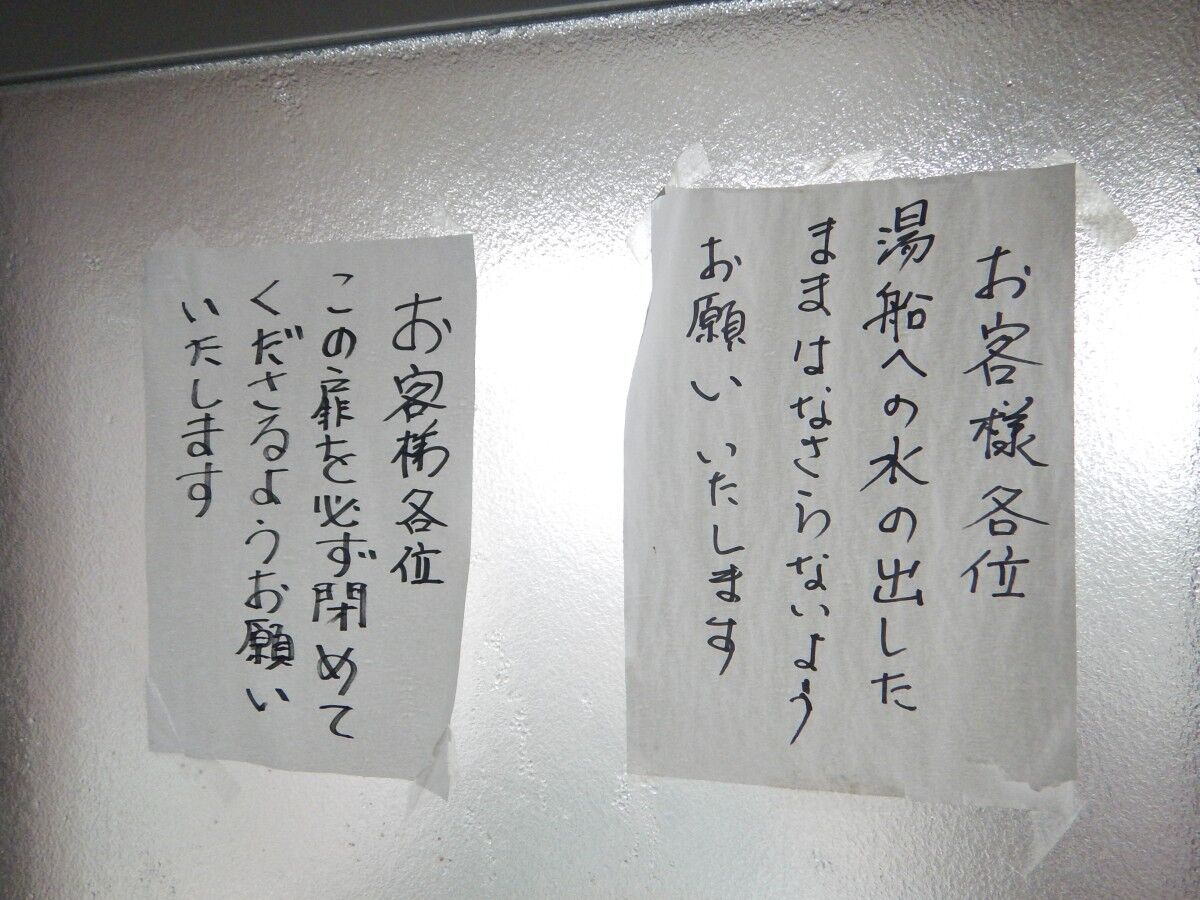 お客様各位
湯船への水の出した
ままはなさらないよう
お願いいたします
お客様各位
この扉を必ず閉めて
くださるようお願い
いたします